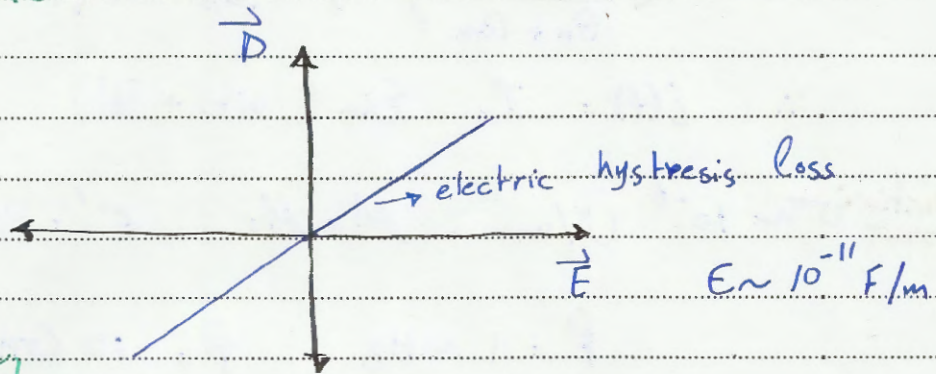 D
→ electric hystresis loss
E
ε ~ 10⁻¹¹ F/m